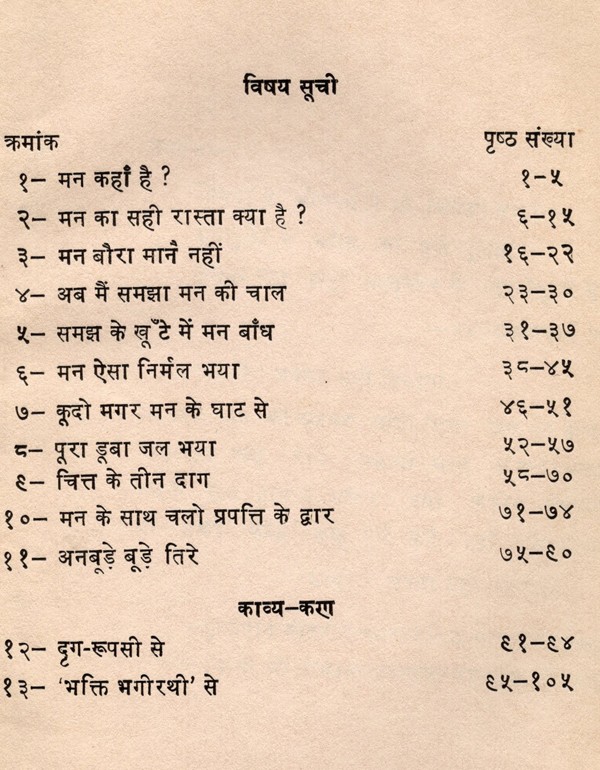 विषय सूची
क्रमांक पृष्ठ संख्या
१– मन कहाँ है ? १–५
२– मन का सही रास्ता क्या है ? ६–१५
३– मन बौरा मानैं नहीं १६–२२
४– अब मैं समझा मन की चाल २३–३०
५– समझ के खूँटे में मन बाँध ३१–३७
६– मन ऐसा निर्मल भया ३८–४५
७– कूदो मगर मन के घाट से ४६–५१
८– पूरा डूबा जल भया ५२–५७
९– चित्त के तीन दाग ५८–७०
१०– मन के साथ चलो प्रपत्ति के द्वार ७१–७४
११– अनबूड़े बूड़े तिरे ७५–९०
काव्य–कण
१२– दृग-रूपसी से ९१–९४
१३– ‘भक्ति भगीरथी’ से ९५–१०५